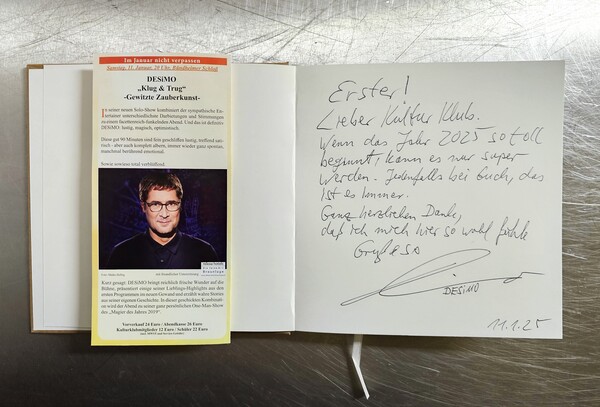 Im Januar nicht verpassen
Samstag, 11. Januar, 20 Uhr, Bündheimer Schloß
DESiMO
„Klug & Trug“
-Gewitzte Zauberkunst-
In seiner neuen Solo-Show kombiniert der sympathische En-
tertainer unterschiedliche Darbietungen und Stimmungen
zu einem facettenreich-funkelnden Abend. Und das ist definitiv
DESiMO: lustig, magisch, optimistisch.
Diese gut 90 Minuten sind fein geschliffen lustig, treffend sati-
risch - aber auch komplett albern, immer wieder ganz spontan,
manchmal berührend emotional.
Sowie sowieso total verblüffend.
Kurz gesagt: DESiMO bringt reichlich frische Wunder auf die
Bühne, präsentiert einige seiner Lieblings-Highlights aus den
ersten Programmen im neuen Gewand und erzählt wahre Stories
aus seiner eigenen Geschichte. In dieser geschickten Kombinati-
on wird der Abend zu seiner ganz persönlichen One-Man-Show
des „Magier des Jahres 2019“.
Vorverkauf 24 Euro / Abendkasse 26 Euro
Kulturklubmitglieder 22 Euro / Schüler 22 Euro
Erster!
Lieber Kultur Klub.
Wenn das Jahr 2025 so toll
beginnt, kann es nur super
werden. Jedenfalls bei Euch, das
ist es immer.
Ganz herzlichen Dank,
daß ich mich hier so wohl fühle
DESiMO
11.1.25